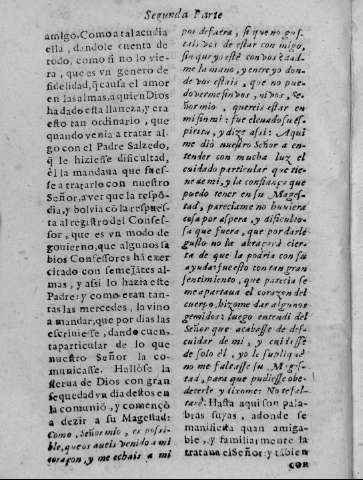 Segunda Parte
amigo. Como a tal acudia
ella, dandole cuenta de
todo, como si no lo vie-
ra, que es vn genero de
fidelidad, q̃ causa el amor
en las almas, a quien Dios
ha dado esta llaneza, y era
esto tan ordinario, que
quando venia a tratar al-
go con el Padre Salzedo,
q̃ le hiziesse dificultad,
èl la mandaua que fues-
se a tratarlo con nuestro
Señor, a ver que la respõ-
dia, y boluia cõ la respues-
ta al registro del Confes-
sor, que es vn modo de
gouierno, que algunos sa
bios Confessores hã exer-
citado con semejãtes al-
mas, y assi lo hazia este
Padre: y como eran tan-
tas las mercedes, la vino
a mandar, que por dias las
escriuiesse, dando cuen-
ta particular de lo que
nuestro Señor la co-
municasse. Hallòse la
sierua de Dios con gran
sequedad vn dia destos en
la comuniõ, y començò
a dezir a su Magestad:
Como, Señor mio, es possi-
ble, que os aueis venido a mi
coraçon, y me echais a mi
por defuera, si que no gus-
teis vos de estar con migo,
sin que yo estè con vos? dad-
me la mano, y entre yo don-
de vos estais, que no pue-
do verme sin vos, ni vos, Se-
ñor mio, quereis estar en
mi sin mi: fue eleuado su es-
piritu, y dize assi: Aqui
me diò nuestro Señor a en-
tender con mucha luz el
cuidado particular que tie-
ne de mi, y la confiança que
puedo tener en su Mages-
tad, pareciame no huuiera
cosa por aspera, y dificulto-
sa que fuera, que por darle
gusto no la abraçara cier-
ta de que la podria con su
ayuda: fue esto con tan gran
sentimiento, que parecia se
me apartaua el coraçon del
cuerpo, hizome dar algunos
gemidos: luego entendi del
Señor que acabasse de des-
cuidar de mi, y cuidasse
de solo èl, yo le suplique
no me faltasse su Mages-
tad, para que pudiesse obe-
decerle y dixome: No te fal-
tarè. Hasta aqui son pala-
bras suyas, adonde se
manifiesta quan amiga-
ble, y familiarmente la
trataua el Señor: y tãbien
cor